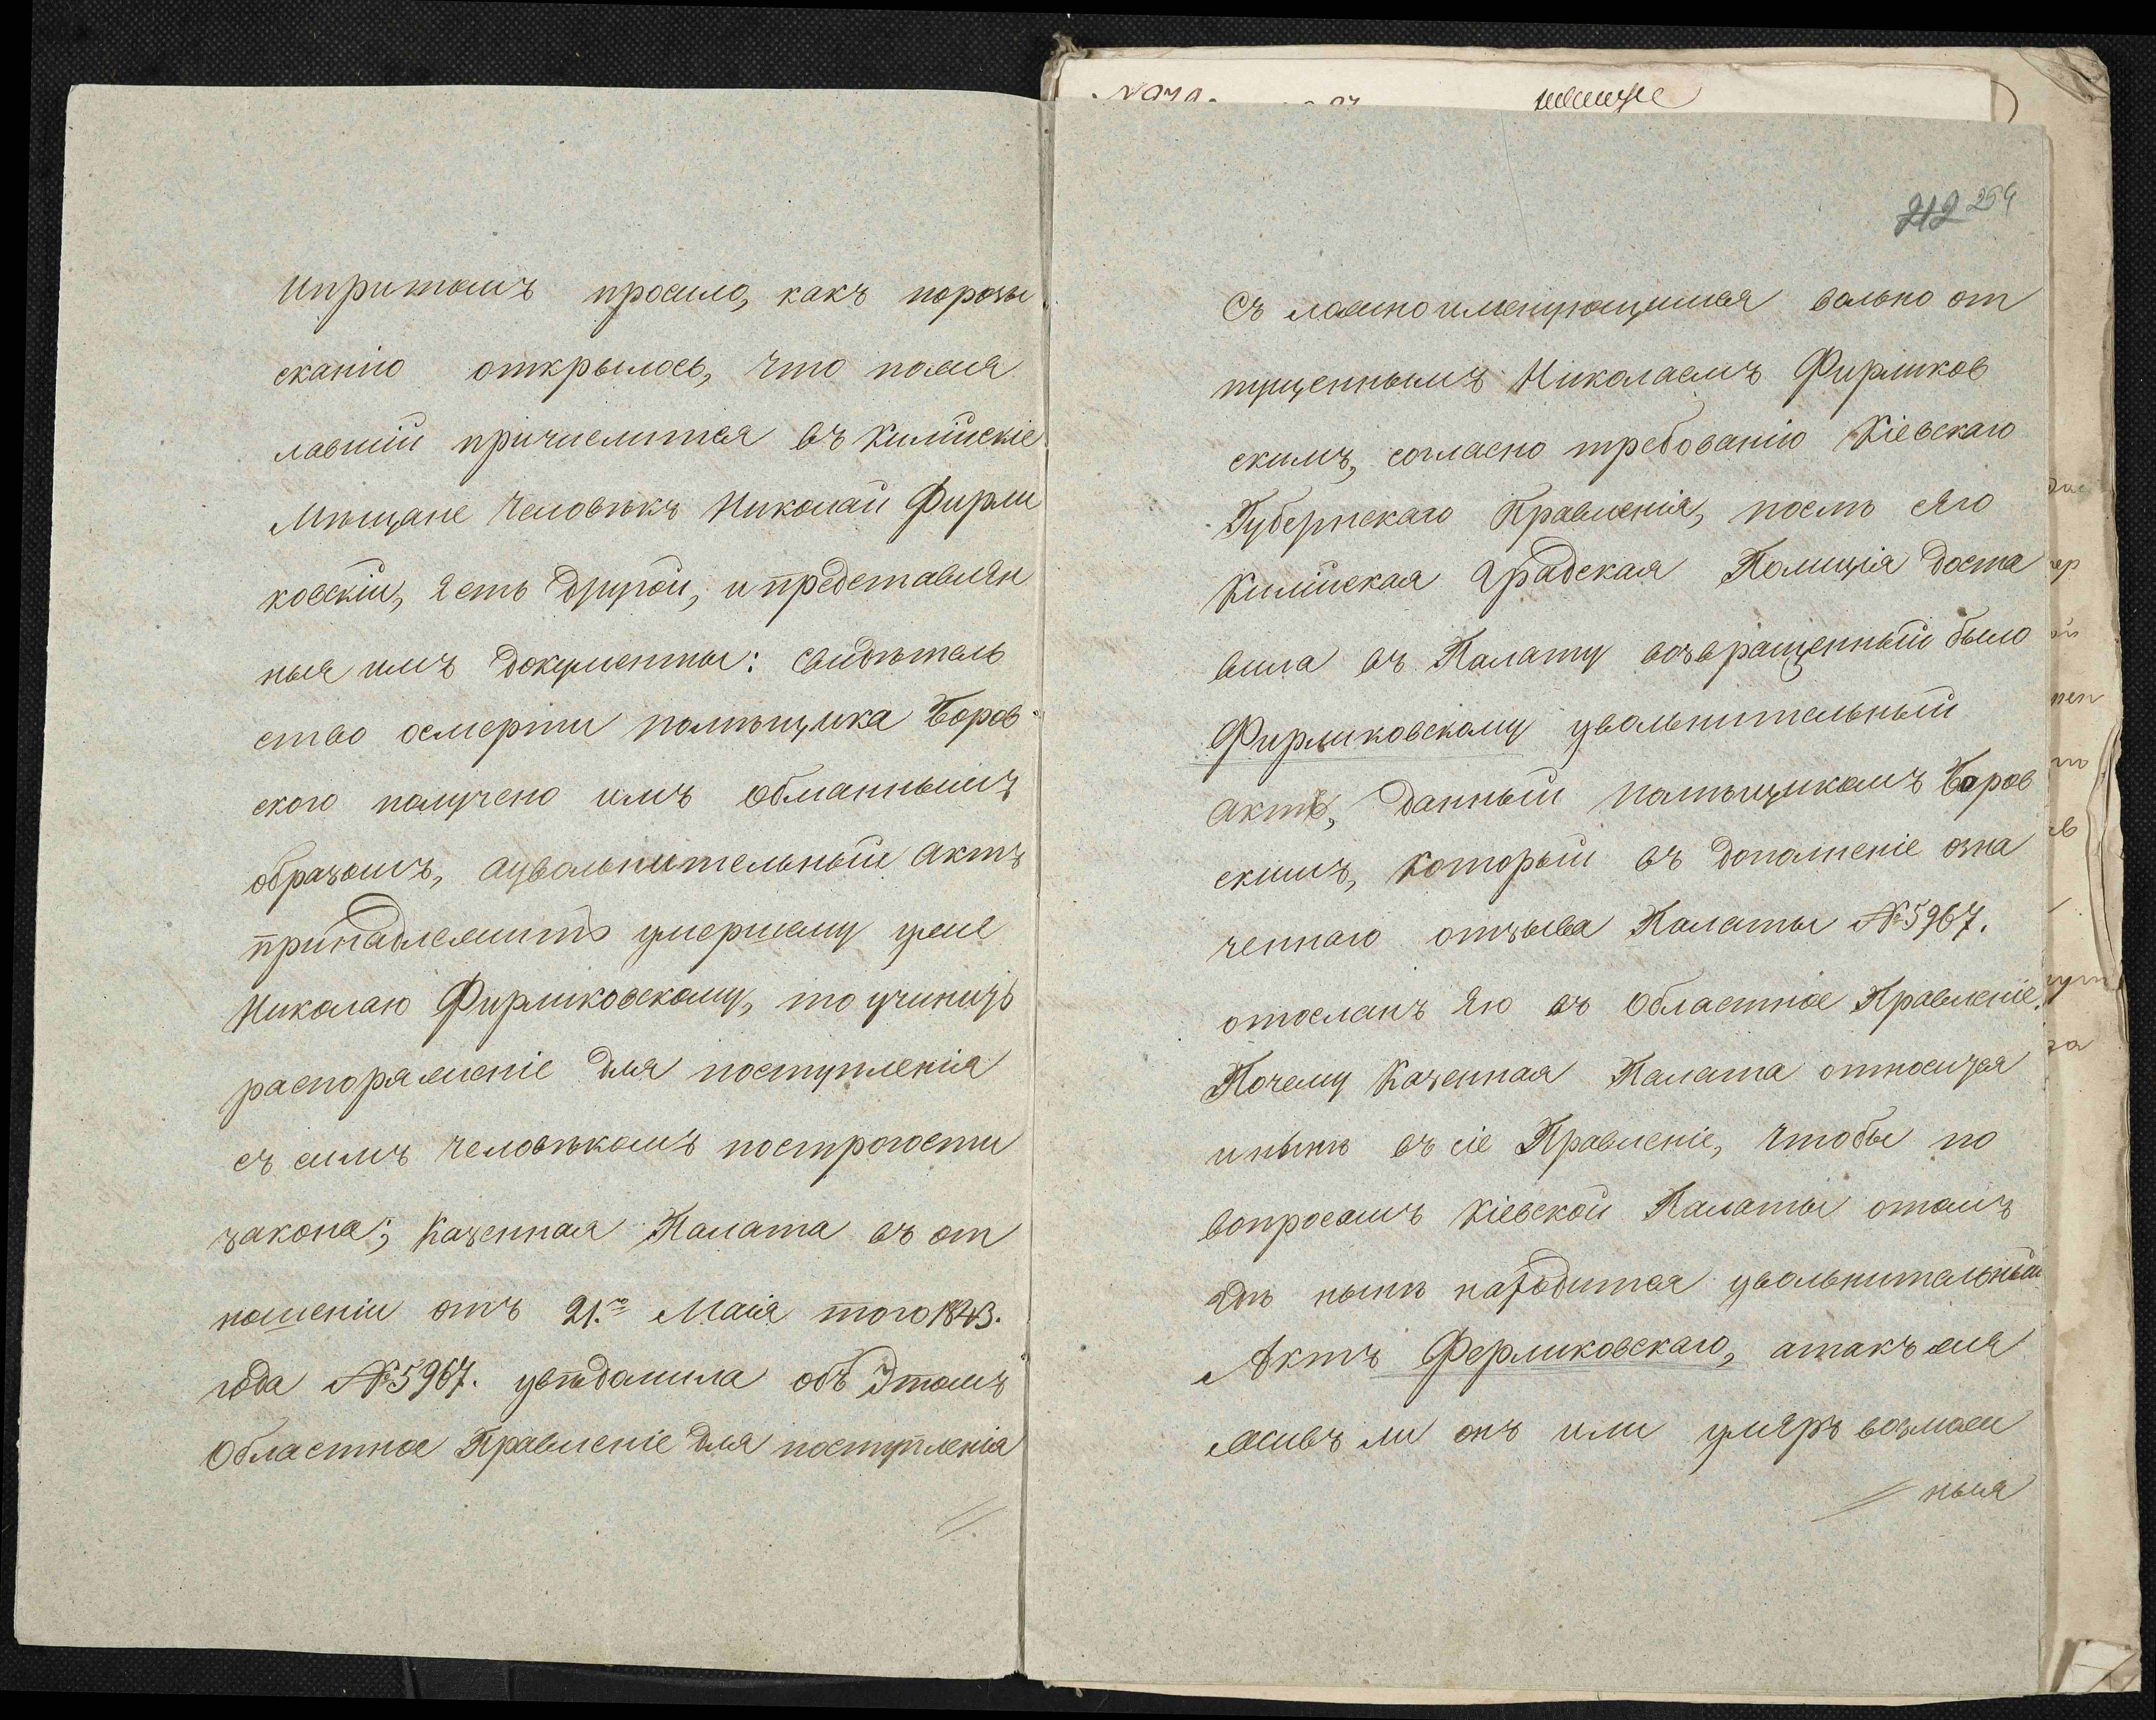 Ипритомъ просило, какъ порозы
сканію открылось, что пожела
лавшій причислится въ Килійскіе
Мѣщане человѣкъ Николай Фирли
ковскій, Есть другой, и представлен
ныя имъ документы: свидѣтель
ство осмерти помѣщика Боров
ского получено имъ обманнымъ
образомъ, аувольнительный актъ
принадлежитъ умершему уже
Николаю Фирликовскому, то учинить
распоряженіе для поступленія
съ симъ человѣкомъ построгости
закона; Казенная Палата въ от
ношеніи отъ 21.го Маія того 1843.
года № 5967. увѣдомила объ Этомъ
Областное Правленіе для поступленія
212 254
Съ ложноименующимся вольно от
пущеннымъ Николаемъ Фирликов
скимъ, согласно требованію Кіевскаго
Губернскаго Правленія, послѣ сего
Килійская Градская Полиція доста
вила въ Палату возвращенный было
Фирликовскому увольнительный
актъ, данный помѣщикомъ Боров
скимъ, который въ дополненіе озна
ченнаго отзыва Палаты № 5967.
отосланъ Ею въ Областное Правленіе.
Почему Казенная Палата относится
инынѣ въ сіе Правленіе, чтобы по
вопросамъ Кіевской Палаты отомъ
гдѣ нынѣ находится увольнительный
Актъ Ферликовскаго, атакъ же
живъ ли онъ или умеръ возмож
ныя